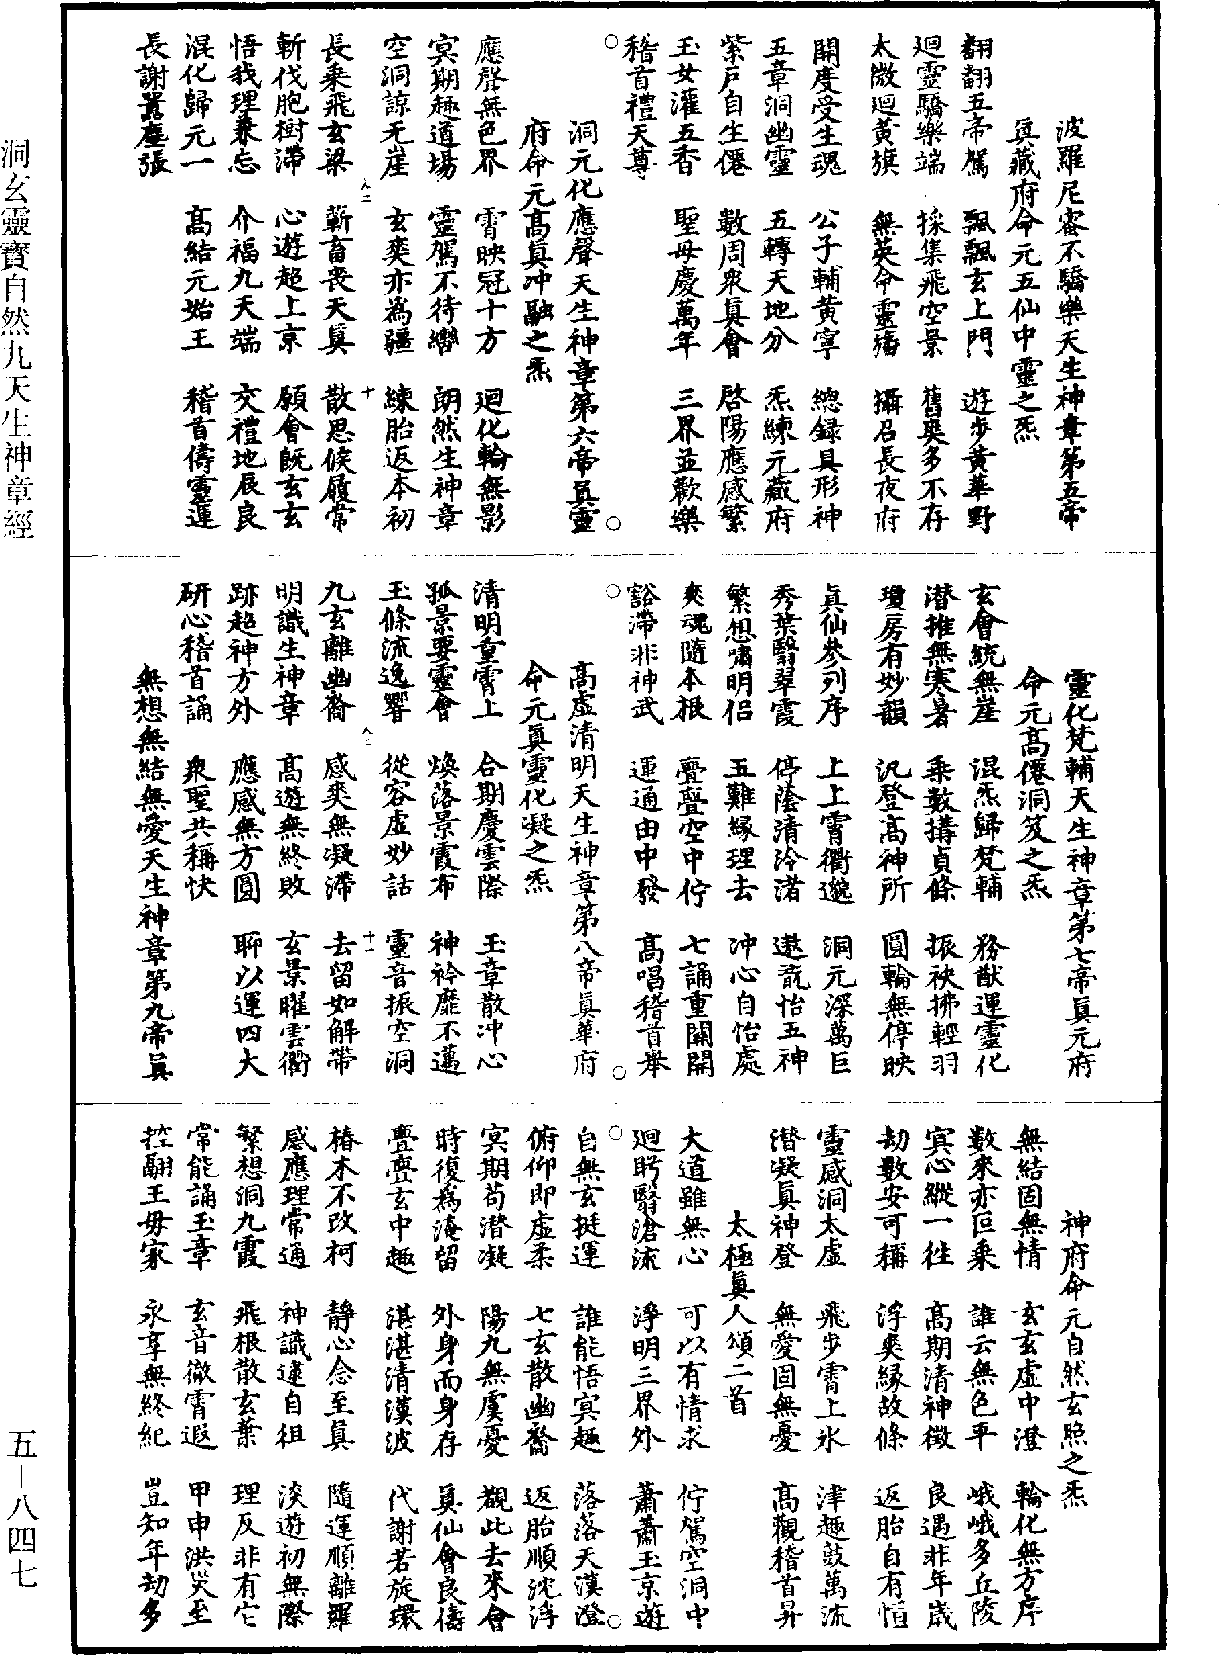 波羅尼密不驕樂天生神章第五帝
真藏府命元五仙中靈之炁
翻翻五帝駕 飄飄玄上門 遊步黃華野
迴靈驕樂端 採集飛空景 舊爽多不存
太微迴黃旗 無英命靈旛 攝召長夜府
開度受生魂 公子輔黃寧 總錄具形神
五章洞幽靈 五轉天地分 炁練元藏府
紫戶自生僊 數周衆真會 啓陽應感繁
玉女灌五香 聖母慶萬年 三界並歡樂
稽首禮天尊
洞元化應聲天生神章第六帝真靈
府命元高真冲融之炁
應聲無色界 霄映冠十方 迴化輪無影
冥期趣道場 靈駕不待轡 朗然生神章
空洞諒无崖 玄爽亦為疆 練胎返本初
長乘飛玄梁 蘄畜喪天真 散思候履常
斬伐胞樹滯 心遊超上京 願會既玄玄
悟我理兼忘 介福九天端 交禮地辰良
混化歸元一 高結元始王 稽首儔靈運
長謝囂塵張
靈化梵輔天生神章第七帝真元府
命元高僊洞笈之炁
玄會統無崖 混炁歸梵輔 務猷運靈化
潛推無寒暑 乘數構貞條 振袂拂輕羽
瓊房有妙韻 汎登高神所 圓輪無停映
真仙參列序 上上霄衢邈 洞元深萬巨
秀葉翳翠霞 停蔭清泠渚 遨翫怡五神
繁想嘯明侶 五難緣理去 冲心自怡處
爽魂隨本根 亹亹空中佇 七誦重關開
豁滯非神武 運通由中發 高唱稽首舉
高虛清明天生神章第八帝真華府
命元真靈化凝之炁
清明重霄上 合期慶雲際 玉章散冲心
孤景要靈會 煥落景霞布 神衿靡不邁
玉條流逸響 從容虛妙話 靈音振空洞
九玄離幽裔 感爽無凝滯 去留如解帶
明識生神章 高遊無終敗 玄景曜雲衢
跡超神方外 應感無方圓 聊以運四大
研心稽首誦 衆聖共稱快
無想無結無愛天生神章第九帝真
神府命元自然玄照之炁
無結固無情 玄玄虛中澄 輪化無方序
數來亦叵乘 誰云無色平 峨峨多丘陵
冥心縱一往 高期清神徵 良遇非年歲
劫數安可稱 浮爽緣故條 返胎自有恒
靈感洞太虛 飛步霄上冰 津趣鼓萬流
潛凝真神登 無愛固無憂 高觀稽首昇
太極真人頌二首
大道雖無心 可以有情求 佇駕空洞中
迴眄翳滄流 淨明三界外 蕭蕭玉京遊
自無玄挺運 誰能悟冥趣 落落天漢澄
俯仰即虛柔 七玄散幽裔 返胎順沈浮
冥期苟潛凝 陽九無虞憂 覩此去來會
時復為淹留 外身而身存 真仙會良儔
亹亹玄中趣 湛湛清漢波 代謝若旋環
椿木不改柯 靜心念至真 隨運順離羅
感應理常通 神識逮自徂 淡遊初無際
繁想洞九霞 飛根散玄葉 理反非有它
常能誦玉章 玄音徹霄遐 甲申洪災至
控翮王母家 永享無終紀 豈知年劫多
洞玄靈寶自然九天生神章經
五—八四七